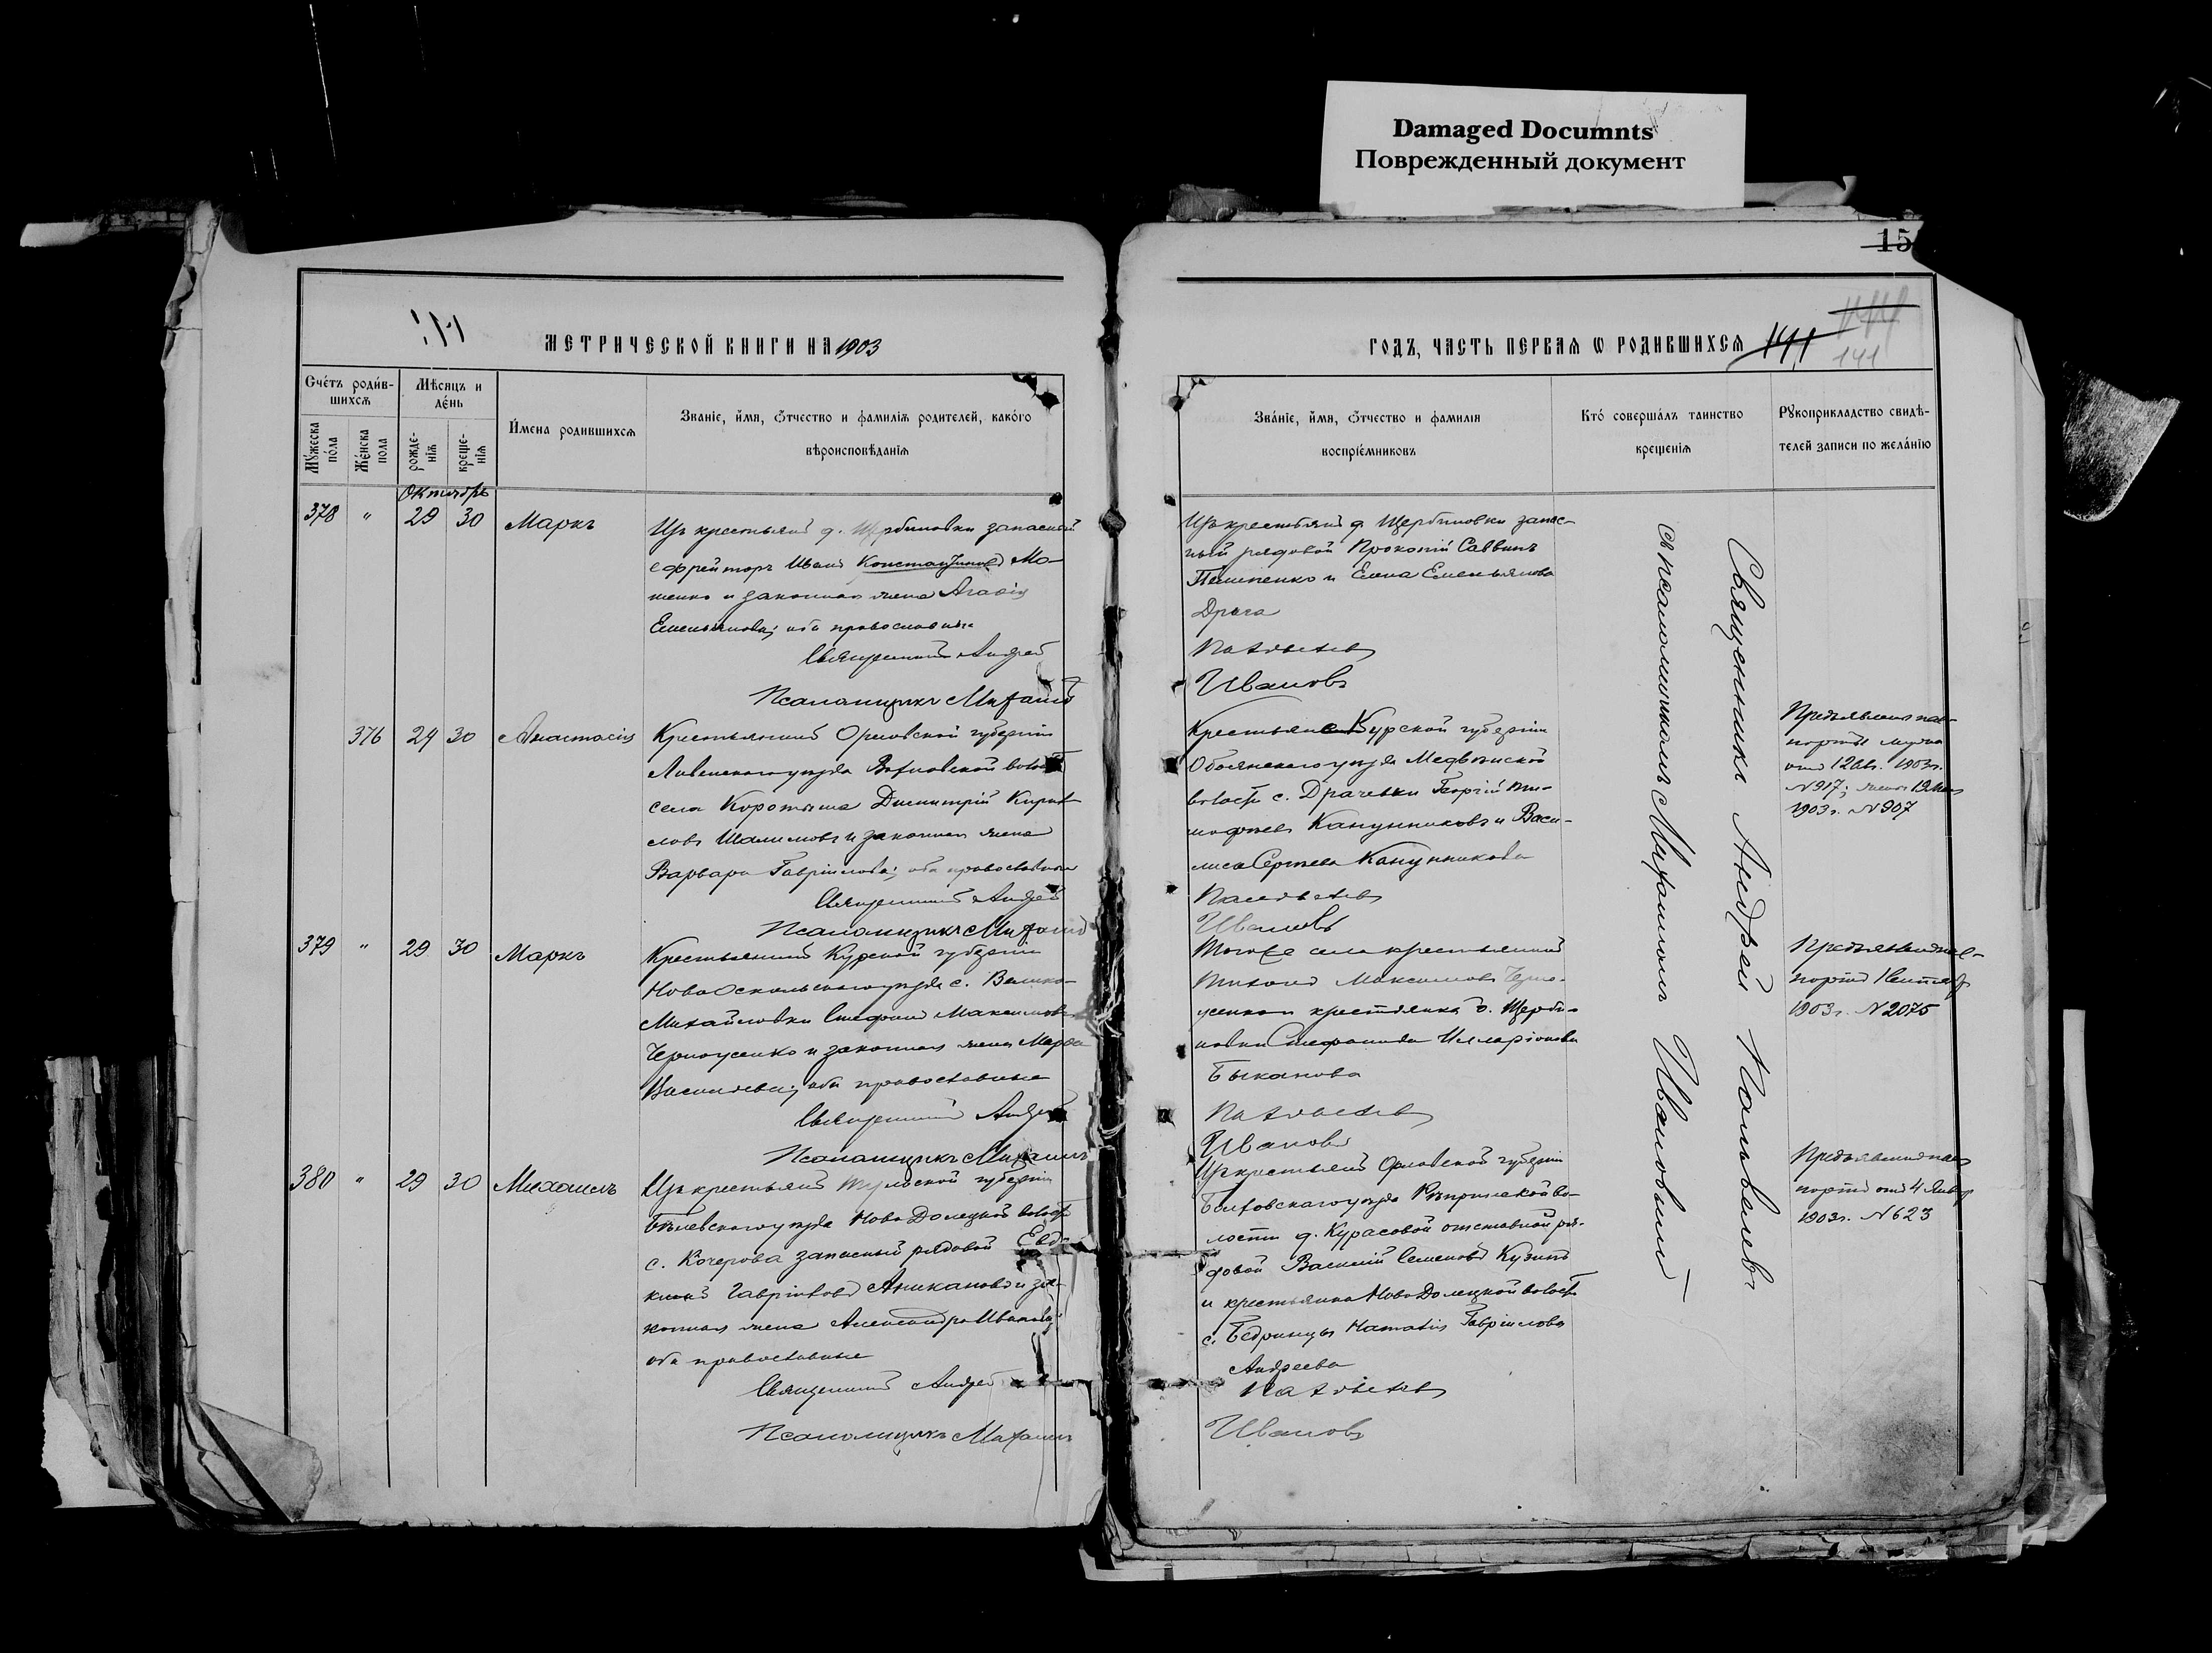 Damaged Documnts
Поврежденный документ
15
МЕТРИЧЕСКОЙ КНИГИ НА 1903
ГОДЪ, ЧАСТЬ ПЕРВАЯ Ѡ РОДИВШИХСЯ 141
141
Счетъ родив-
шихся
Мѣсяцъ и
день
Мужеска
пола
Женска
пола
рожде-
нія
креще-
нія
Имена родившихся
Званіе, имя, отчество и фамилія родителей, какого
вѣроисповѣданія
Званіе, имя, отчество и фамилія
воспріемниковъ
Кто совершалъ таинство
крещенія
Рукоприкладство свидѣ-
телей записи по желанію
Октябрь
378 " 29 30 Маркъ
Изъ крестьянъ д. Щербиновки запасный
ефрейторъ Иванъ Константиновъ Мо-
шенко и законная жена Агафія
Емельянова; оба православные
Священникъ Андрей
Псаломщикъ Михаилъ
Изъ крестьянъ д. Щербиновки запас-
ный рядовой Прокопій Саввинъ
и Елена Емельянова
Драга
Павловъ
Ивановъ
376 29 30 Анастасія
Крестьянинъ Орловской губерніи
Ливенскаго уѣзда волости
села Коротыша Димитрій Кирил-
ловъ Шалимовъ и законная жена
Варвара Гавріилова; оба православные
Священникъ Андрей
Псаломщикъ Михаилъ
Крестьяне Курской губерніи
Обоянскаго уѣзда Медвенской
волости с. Драчевки Георгій Ти-
мофеевъ Канунниковъ и Васи-
лиса Сергѣева Канунникова
Ивановъ
Предъявленъ пас-
портъ мужа
отъ 12 Авг. 1903г.
№ 917; жены
1903г. № 907
379 " 29 30 Маркъ
Крестьянинъ Курской губерніи
Новооскольскаго уѣзда с. Велико-
Михайловки Стефанъ Максимовъ
Черноусенко и законная жена Марѳа
Васильева; оба православные
Священникъ Андрей
Псаломщикъ Михаилъ
Того же села крестьянинъ
Тихонъ Максимовъ Черно-
усенко и крестьянка д. Щерби-
новки Стефанида Илларіонова
Быканова
Ивановъ
Предъявленъ пас-
портъ
1903г. № 2075
380 " 29 30 Михаилъ
Изъ крестьянъ Тульской губерніи
Бѣлевскаго уѣзда Ново Долецкой волости
с. Кочерова запасный рядовой Евдо-
кимъ Гавріиловъ Аникановъ и за-
конная жена Александра Иванова;
оба православные
Священникъ Андрей
Псаломщикъ Михаилъ
Изъ крестьянъ Орловской губерніи
Болховскаго уѣзда во-
лости д. Курасовой отставной ря-
довой Василій Семеновъ Кузинъ
и крестьянка Ново Долецкой волости
с. Бедринцы Наталія Гавріилова
Андреева
Ивановъ
Предъявленъ пас-
портъ отъ 4 Январ
1903г. № 623
Священникъ Андрей
съ псаломщикомъ Михаиломъ Ивановымъ